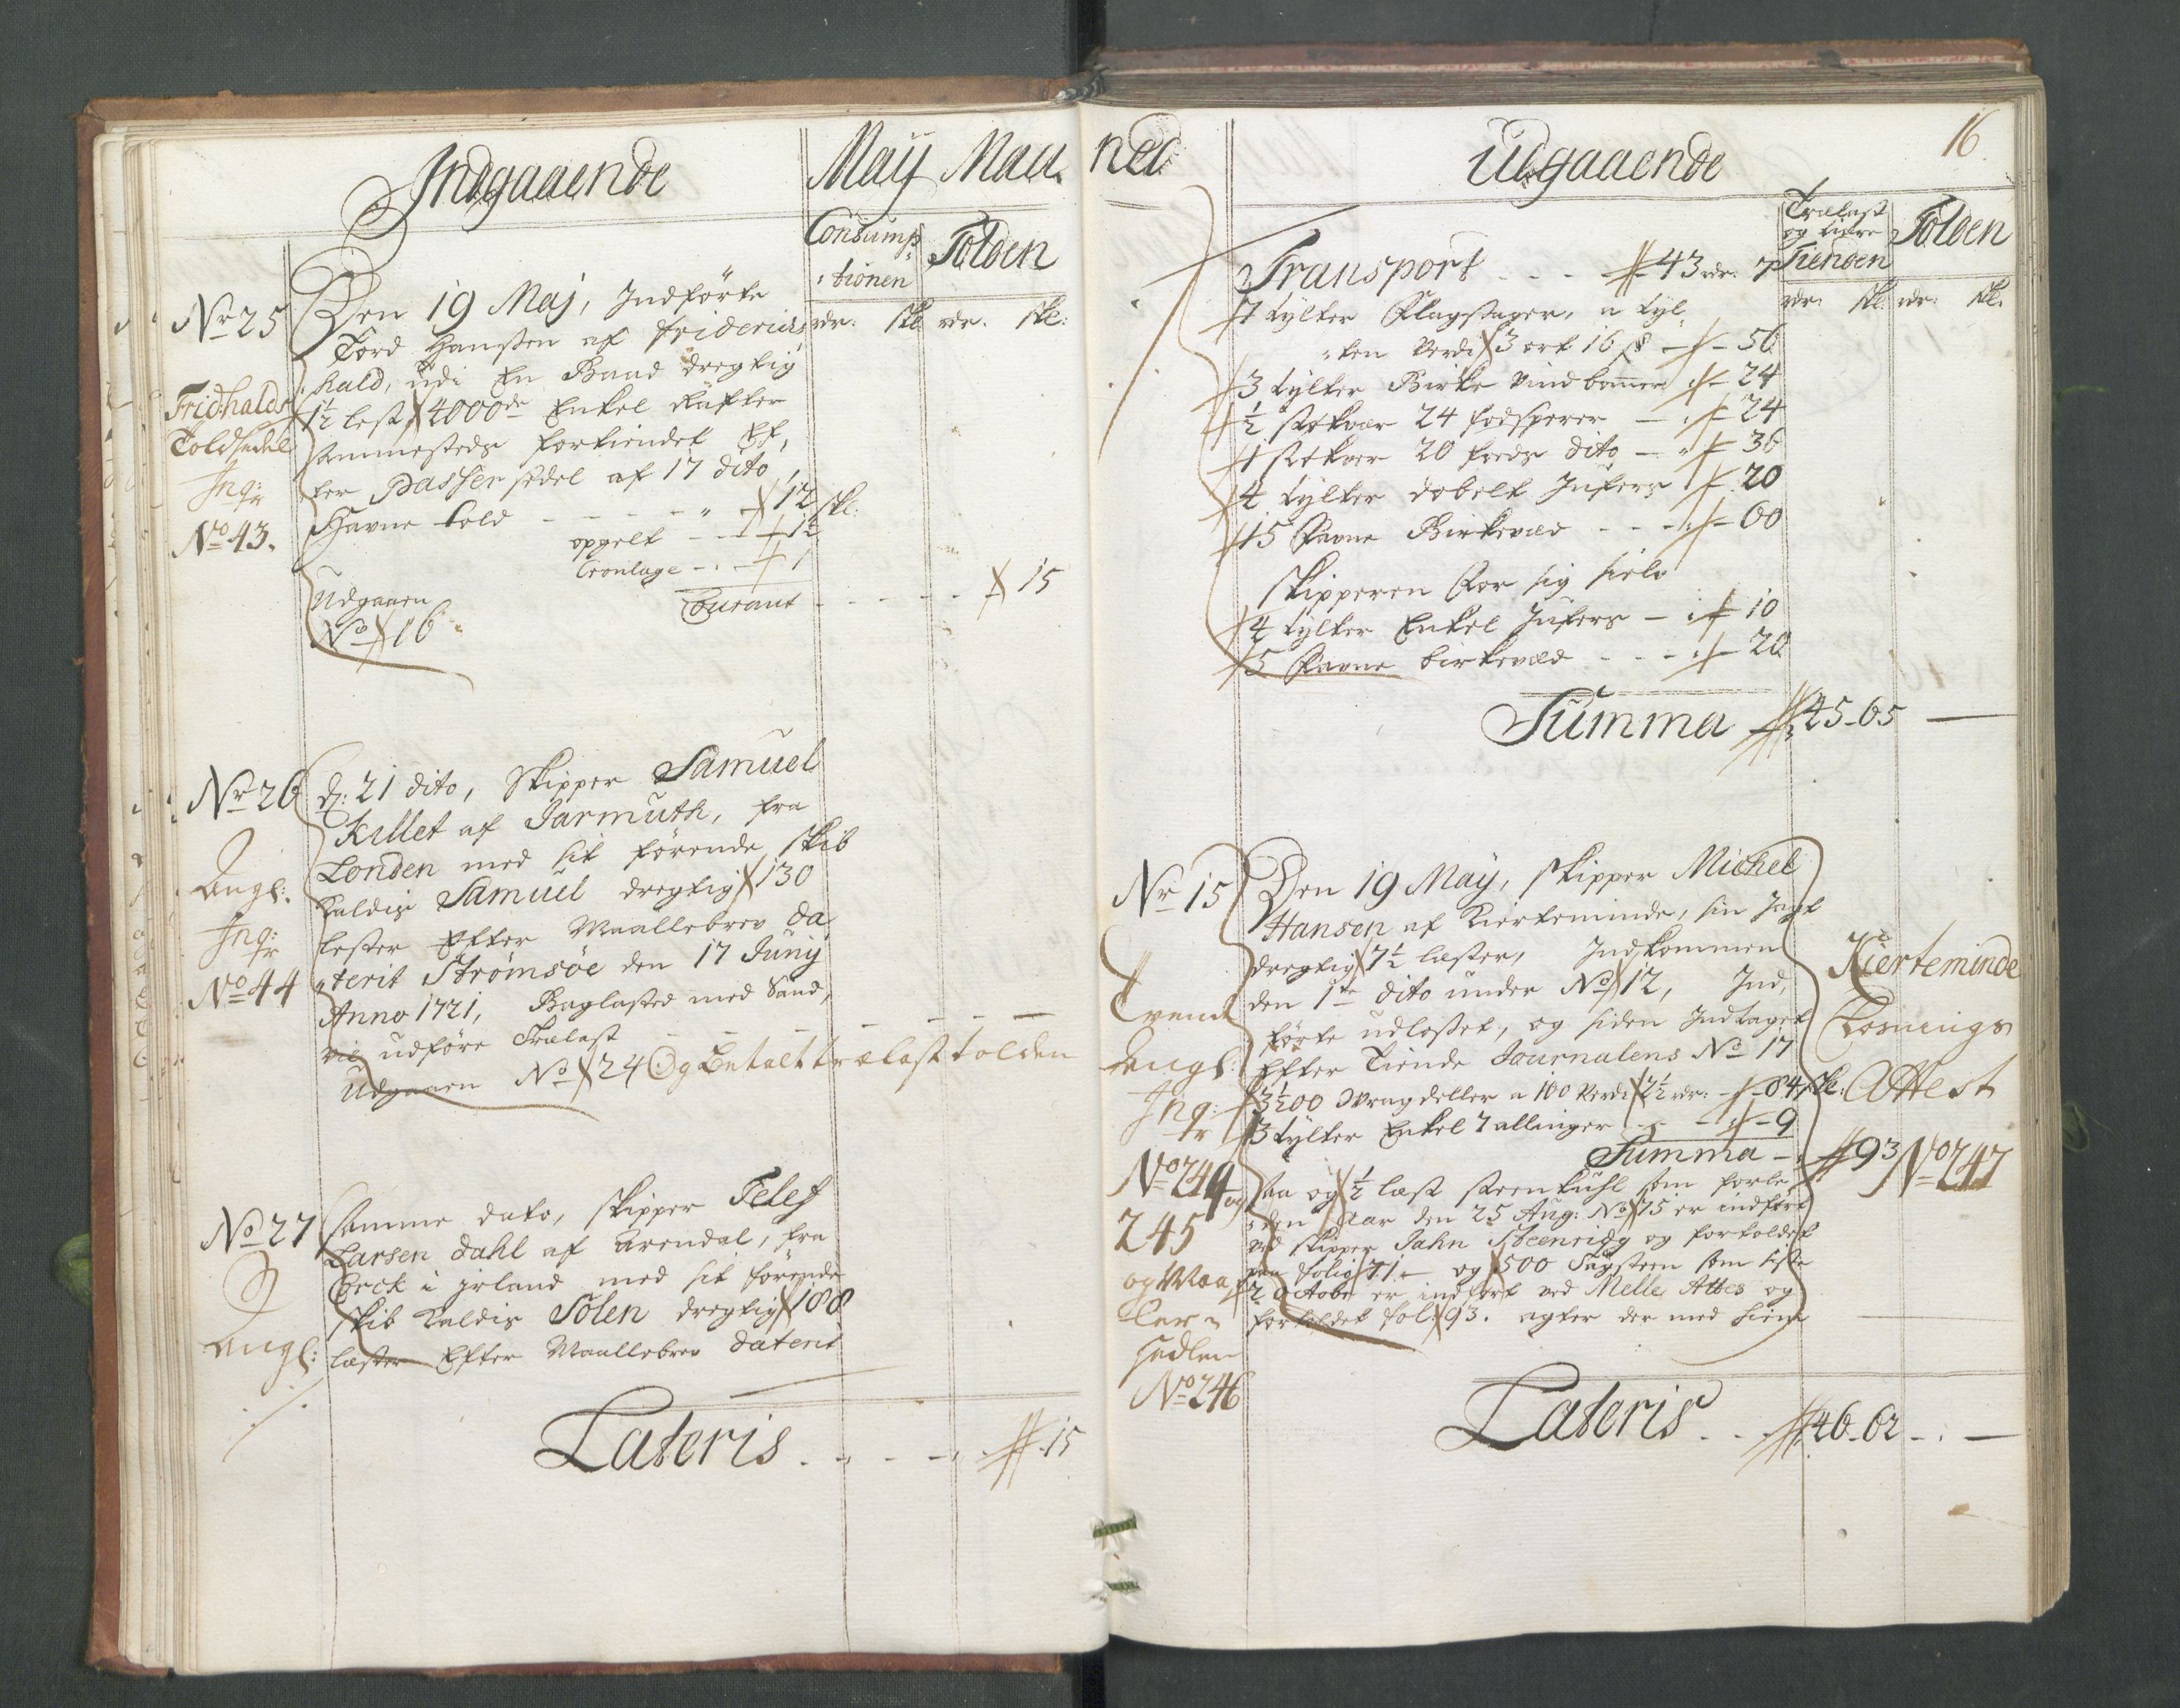 Indgaaende
May Maa
Consump
tionen
Tolden
rdr. skl. rdr. skl:
Nr 25
Fridhalds
Toldsedel
Inq:
No 43.
Den 19 Maj, Indförte
Tord Hanssen af Friderichs
hald, udi En Baad dregtig
1½ lest 4000de Enkel
sammesteds fortiendet Ef,
ter Passer sedel af 17 dito,
Havne told - - - 12 skl.
opgelt - - 1½
Cronlage - - 1
Courant - - - - 15
Udgaaen
No 16
Nr 26
Angl:
Inq:
No 44
d: 21 dito, Skipper Samuel
Killet af Jarmuth, fra
Londen med sit förende skib
kaldis Samuel dregtig 130
lester Efter Maallebrev da
terit Strømsöe den 17 Junij
Anno 1721, Baglasted med Sand,
vil udföre Trælast
Udgaaen No 24 Og betalt trælast tolden
No 27
Angl:
./.
samme dato, skipper Telef
Larsen Dahl af Arendal, fra
Corck i Jrland med sit förende
skib kaldis Solen dregtig 188
læster Efter Maallebrev daterit
Lateris - - - 15
ned
Udgaaende
16
Trælast
og
Tienden
Tolden
rdr: skl: rdr: skl.
Transport - - - 43 rdr. 7
7 tylter Flagstager, a tyl
ten verdi 3 ort 16 s - 56
3 tylter Birke Vindbommer - 24
½ stokvar 24 fodsperer - 24
1 stokver 20 foeds dito - 36
4 tylter dobelt Jufers - 20
15 Favne Birkeved - - - 60
skipperen for sig sielv
4 tylter Enkel Jufers - 10
5 Favne birkeved - - - 20
Summa 45 - 65 -
Nr 15
Angl:
Inq:
No 244 og
245
og Maa
ler
sedlen
No 246
Den 19 May, skipper Michel
Hansen af Kierteminde, sin Jagt
dregtig 7½ læster, Indkommen
den 1te dito under No 12, Ind,
förte udlosset, og siden Indtaget
Efter Tiende Journalens No 17
3½00 Vragdeller a 100 verdi 2½ rdr: - 84 skl:
3 tylter Enkel 7 allinger - - 9
Summa - 93
saa og ½ last steenkuhl som forle,
den Aar den 25 Aug: No 75 er indfört
ved skipper Jahn og fortoldet
paa folio 71 - og 500 som sidste
2 Octobr er indfört ved Melle Attes og
fortoldet fol: 93. agter der med hiem
Kierteminde
Losnings
Attest
No 247
Lateris - - 46 - 62 - : -